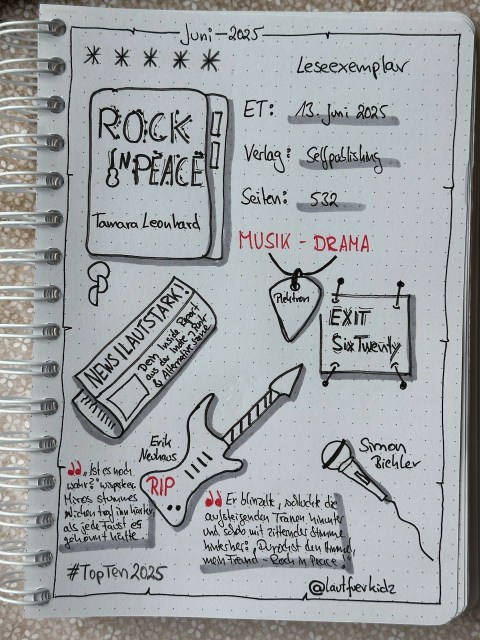 Juni - 2025
Leseexemplar
ROCK
IN PEACE
Tamara Leonhard
ET: 13. Juni 2025
Verlag: Selfpublishing
Seiten: 532
MUSIK - DRAMA
Plektron
EXIT
SixTwenty
NEWS||LAUTSTARK!
Dein Inside Report
aus der Indie, Punk
& Alternative Szene
Erik
Neuhaus
RIP
Simon
Bichler
„Ist es noch
wahr?" wisperte
Miros stummes
Nicken traf ihn härter,
als jede Faust es
gekonnt hätte.
Er blinzelte, schluckte die
aufsteigenden Tränen hinunter
und schob mit zitternder Stimme
hinterher: „Du rockst den Himmel,
mein Freund - Rock in Peace."
#TopTen2025
@lautfuerkidz